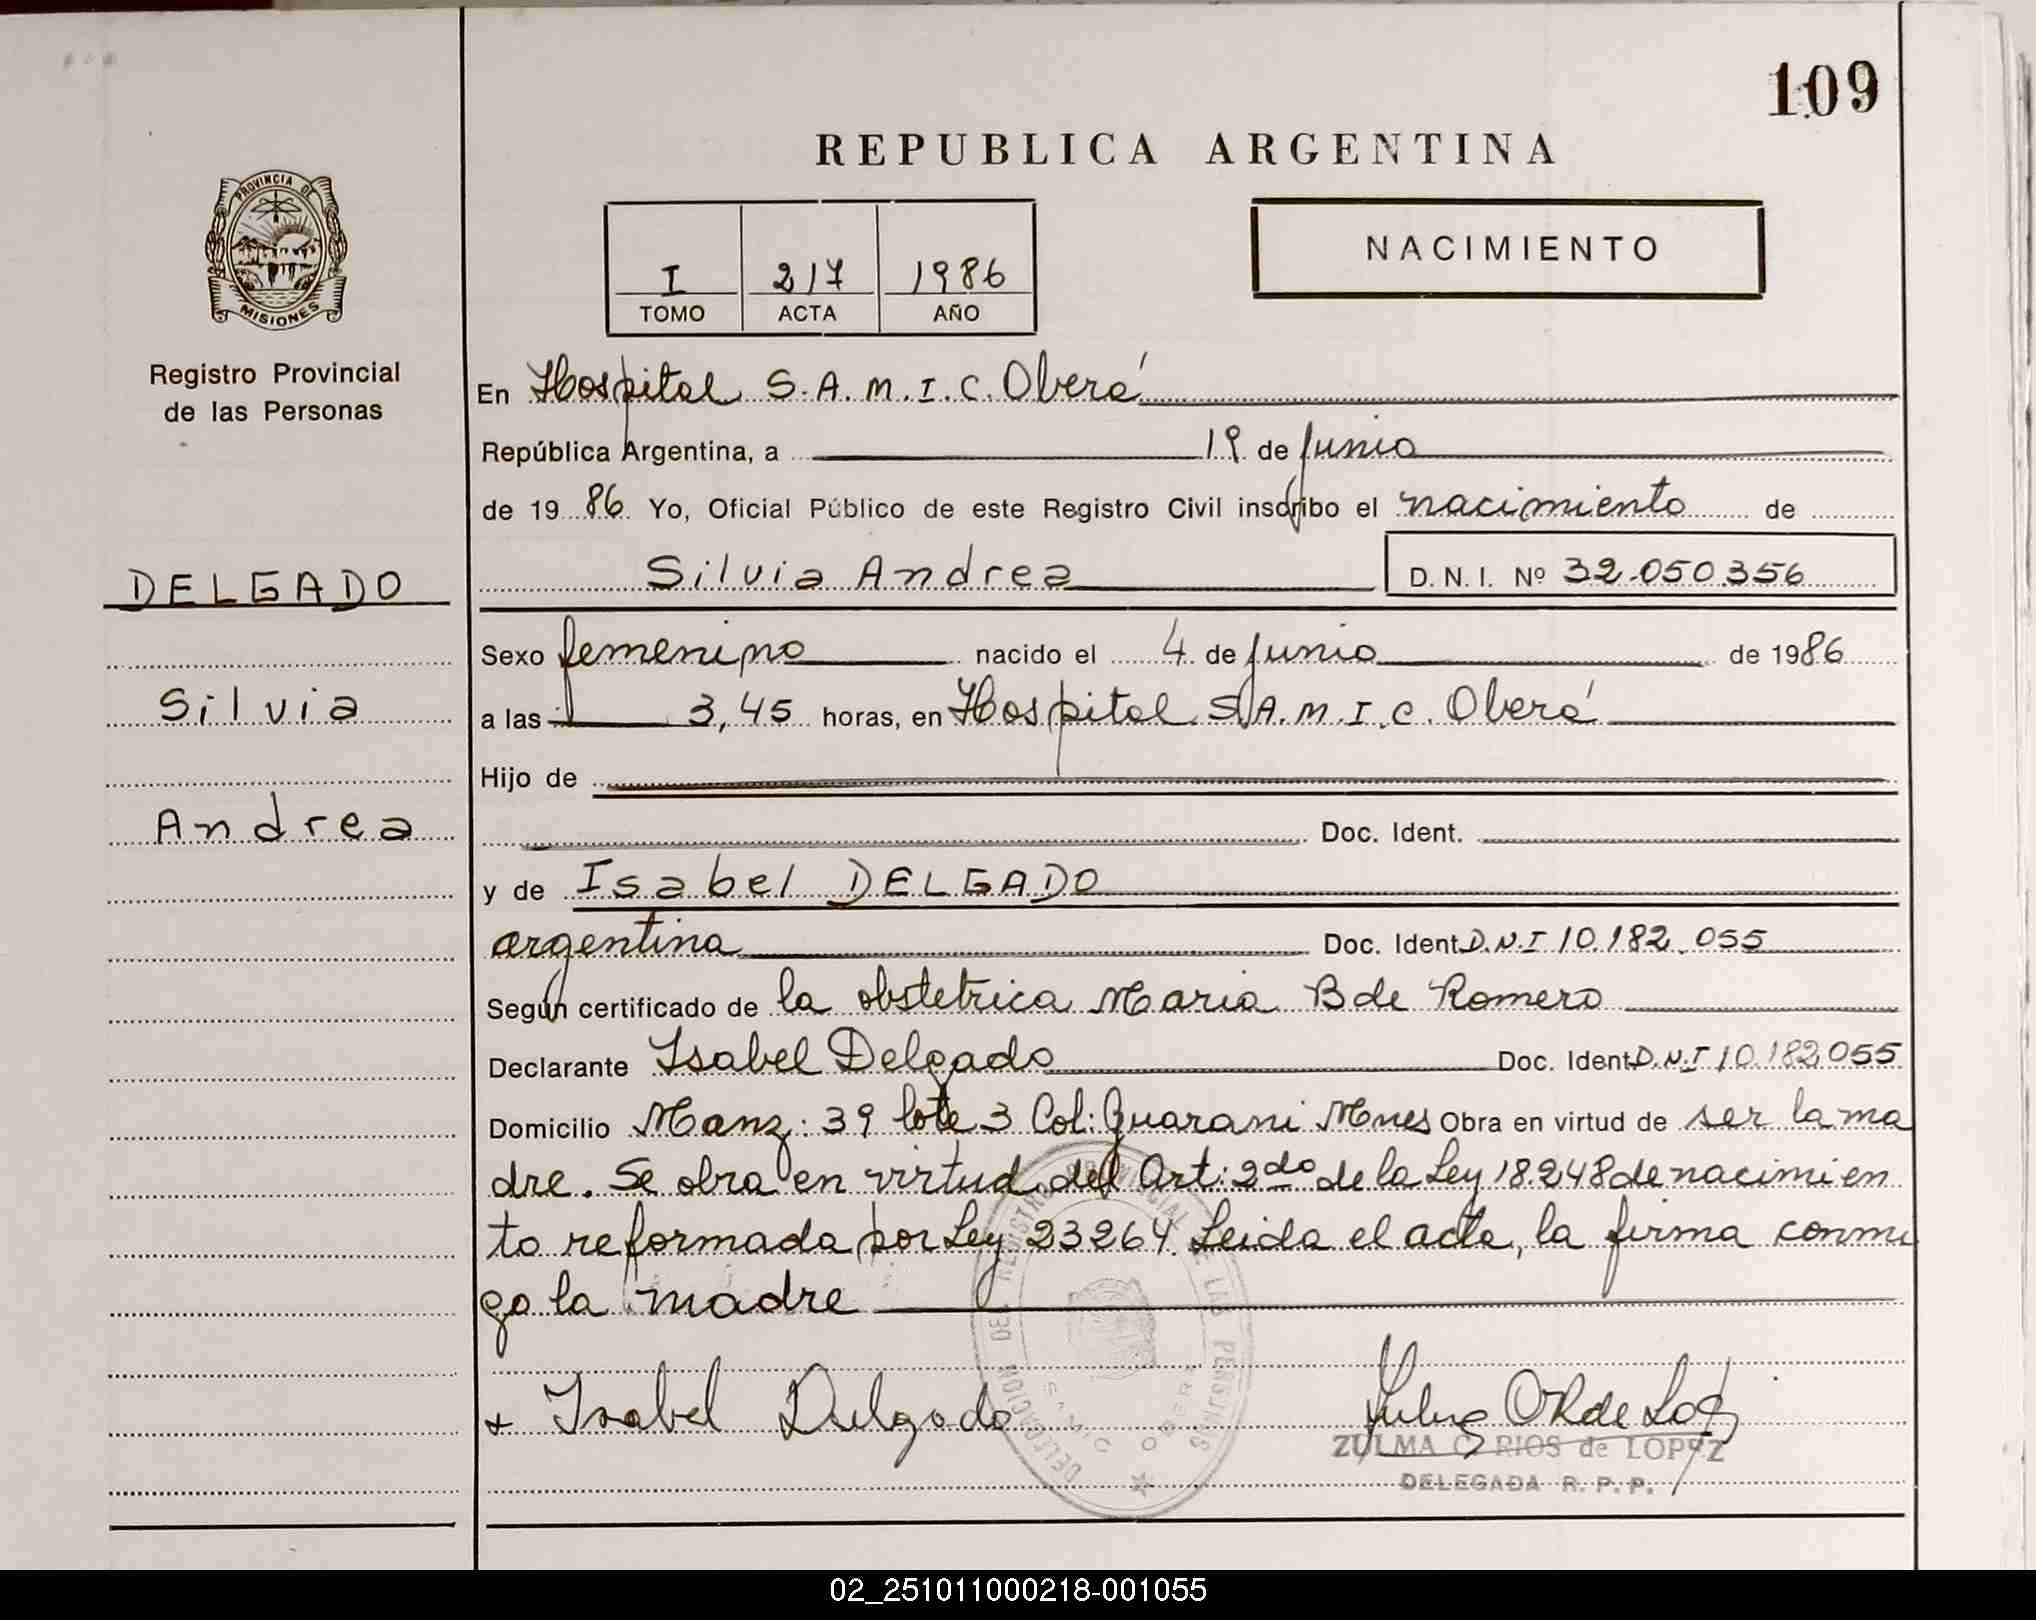 109
REPUBLICA ARGENTINA
PROVINCIA DE
MISIONES
I 217 1986
TOMO ACTA AÑO
NACIMIENTO
Registro Provincial
de las Personas
En Hospital S.A.M.I.C. Oberá
República Argentina, a 19 de Junio
de 1986 Yo, Oficial Público de este Registro Civil inscribo el nacimiento de
Silvia Andrea D. N. I. Nº 32.050.356
DELGADO
Silvia
Andrea
Sexo femenino nacido el 4 de Junio de 1986
a las 3,45 horas, en Hospital S.A.M.I.C. Oberá
Hijo de
Doc. Ident.
y de Isabel DELGADO
argentina Doc. Ident D.N.I 10.182.055
Según certificado de la obstetrica Maria B de Romero
Declarante Isabel Delgado Doc. Ident D.N.I 10.182.055
Domicilio Manz: 39 lote 3 Col: Guarani Mnes Obra en virtud de ser la ma
dre. Se obra en virtud del Art: 2do de la Ley 18.248 de nacimien
to reformada por Ley 23264 Leida el acta, la firma conmi
go la madre
+ Isabel Delgado
DELEGACION DEL REGISTRO PROVINCIAL DE LAS PERSONAS
SAMIC OBERA
ZULMA C. RIOS de LOPEZ
DELEGADA R. P. P.
02_251011000218-001055